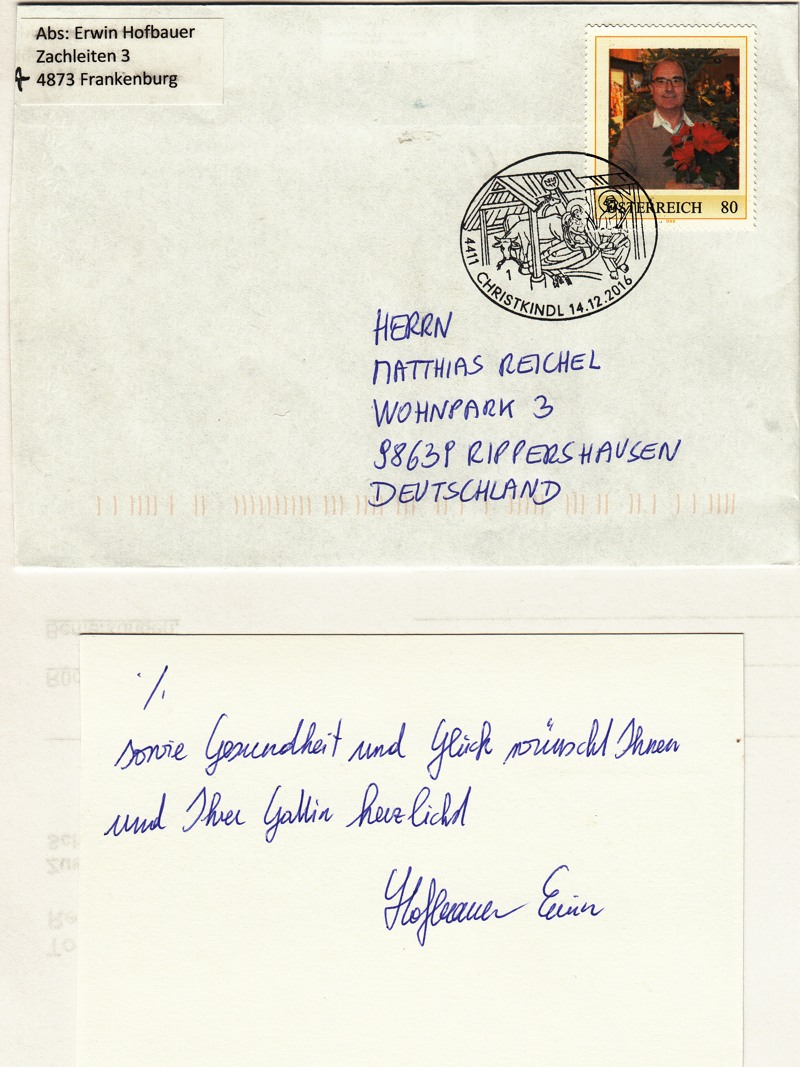 Abs: Erwin Hofbauer
Zachleiten 3
A 4873 Frankenburg
ÖSTERREICH 80
4411 CHRISTKINDL 14.12.2016
1
HERRN
MATTHIAS REICHEL
WOHNPARK 3
98639 RIPPERSHAUSEN
DEUTSCHLAND
Bemerkungen
./.
sowie Gesundheit und Glück wünscht Ihnen
und Ihrer Gattin herzlichst
Hofbauer Erwin